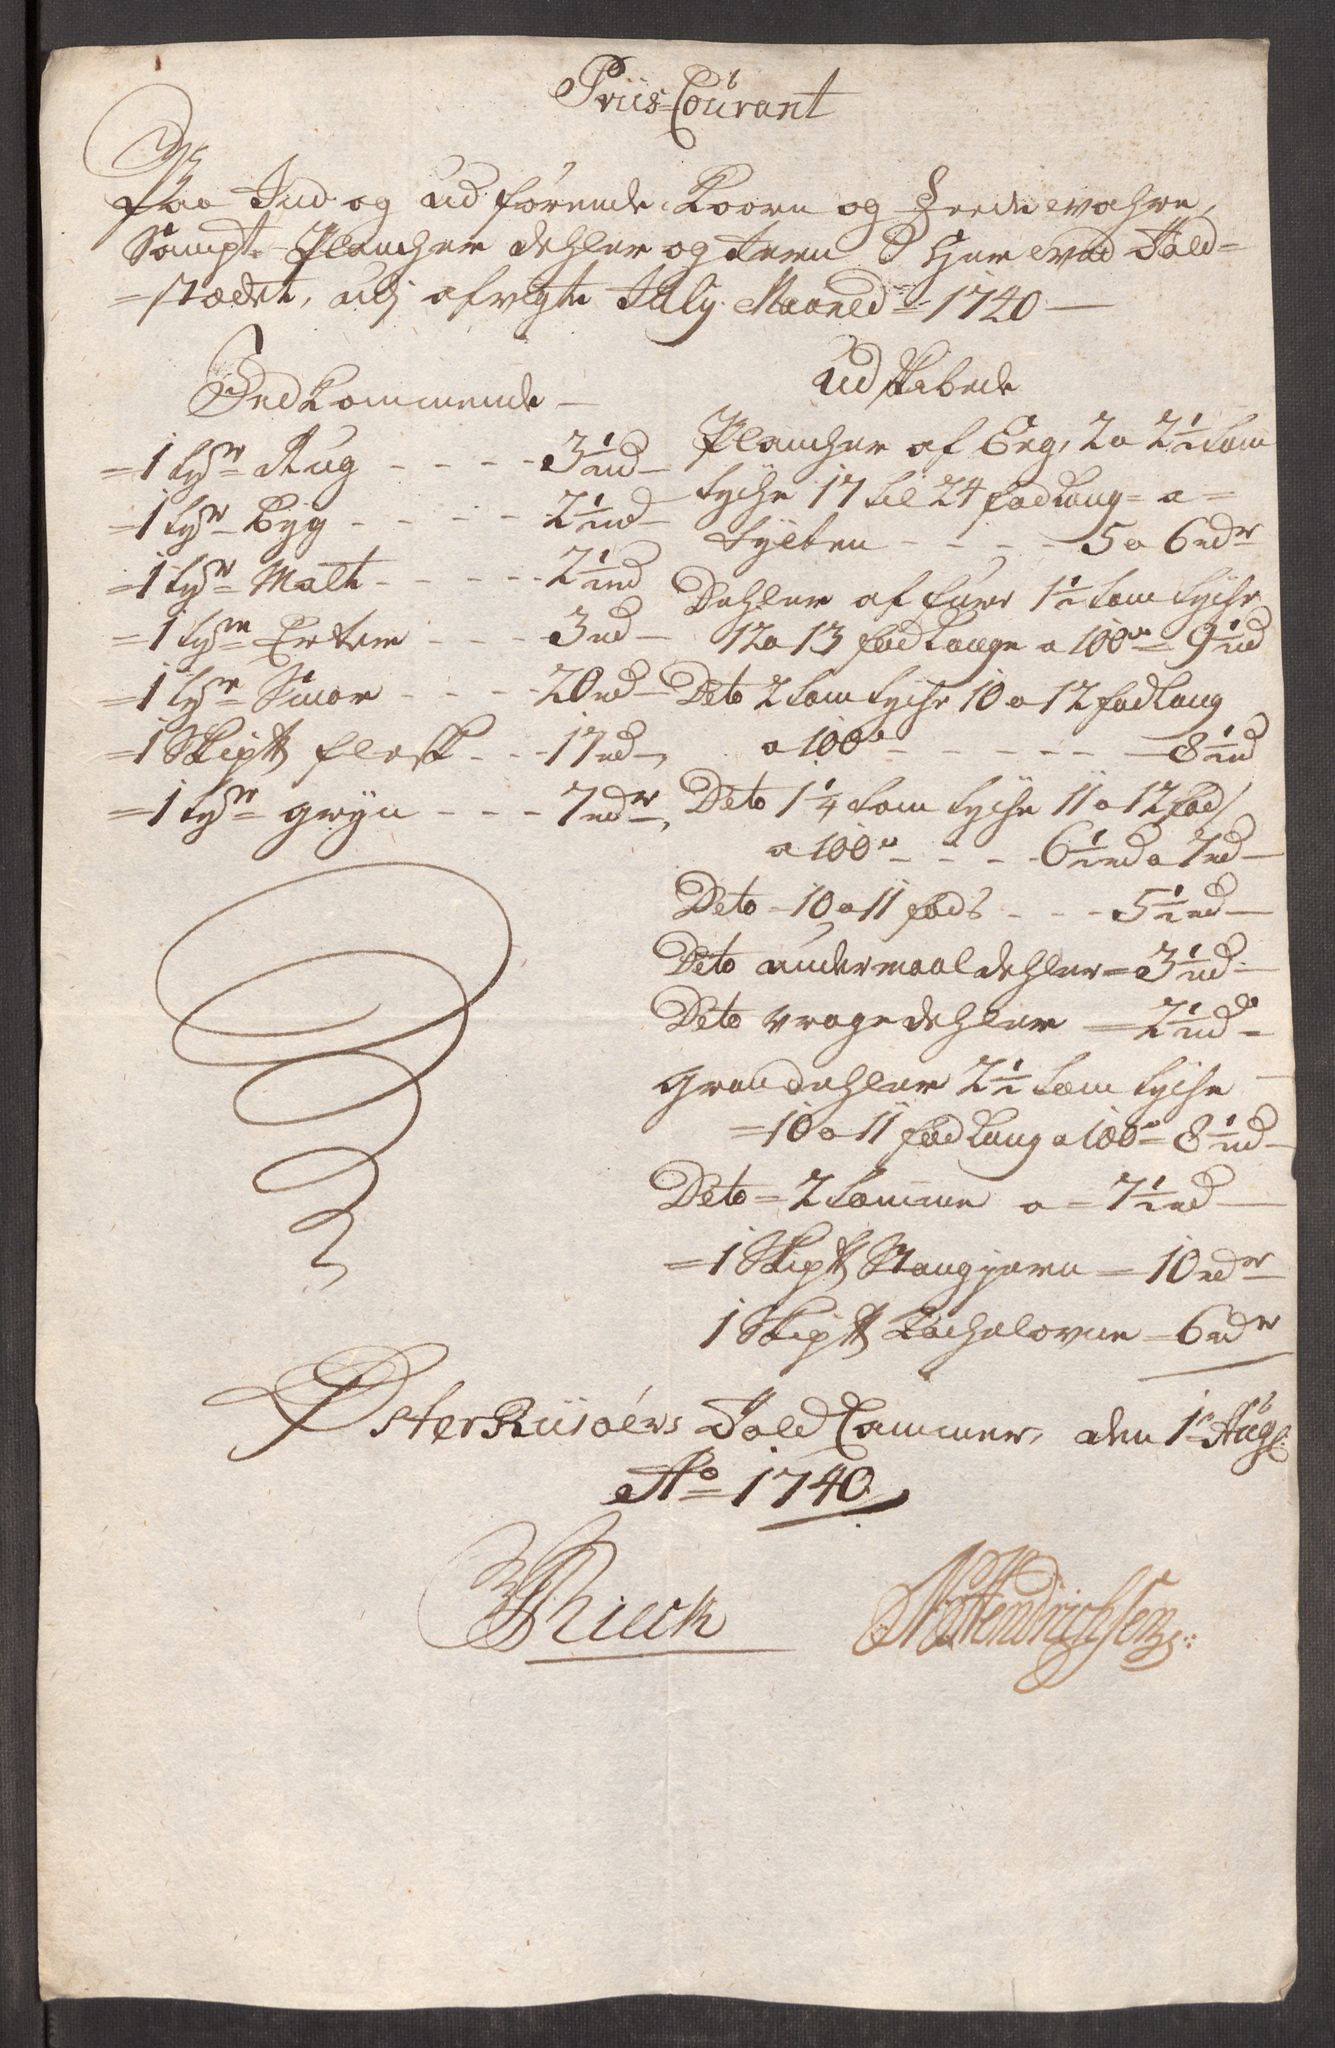 Priis-Courant
Paa Ind og udførende Koorn og Feedevahre,
Sampt Plancher dehler og Jern her ved Told-
stædet, udj afvigte July Maaned 1740
Indkommende
1 tør Rug - - - - 3½ rd
1 tør Byg - - - - 2½ rd
1 tør Malt - - - - 2½ rd
1 tør Erter - - - 3 rd
1 tør Smør - - - - 20 rd
1 Skip℔ flesk - - 17 rd
1 tør gryn - - - 7 rdr
Udskibede
Plancher af Eeg, 2 a 2½ tom
tyche 17 til 24 fod lang a
tylten - - - - 5 a 6 rdr
Dehler af furr 1½ tom tyche
12 a 13 fod lange a 100de 9½ rd
Dito 2 tom tyche 10 a 12 fod lang
a 100de - - - - - 8½ rd
Dito 1¼ tom tyche 11 a 12 fod
a 100de - - - 6½ rd a 7 rd
Dito 10 a 11 fods - - - 5½ rd
Dito undermaal dehler 3½ rd
Dito vragedehler 2½ rd
grandehler 2½ tom tyche
10 a 11 fod lang a 100de 8½ rd
Dito 2 tomme a 7½ rd
1 Skip℔ Stangjern 10 rdr
1 Skip℔ Kachelovne 6 rdr
ØsterRiisøers Told Cammer, den 1te Aug:
Ao 1740
Rieck
Hendrichsen